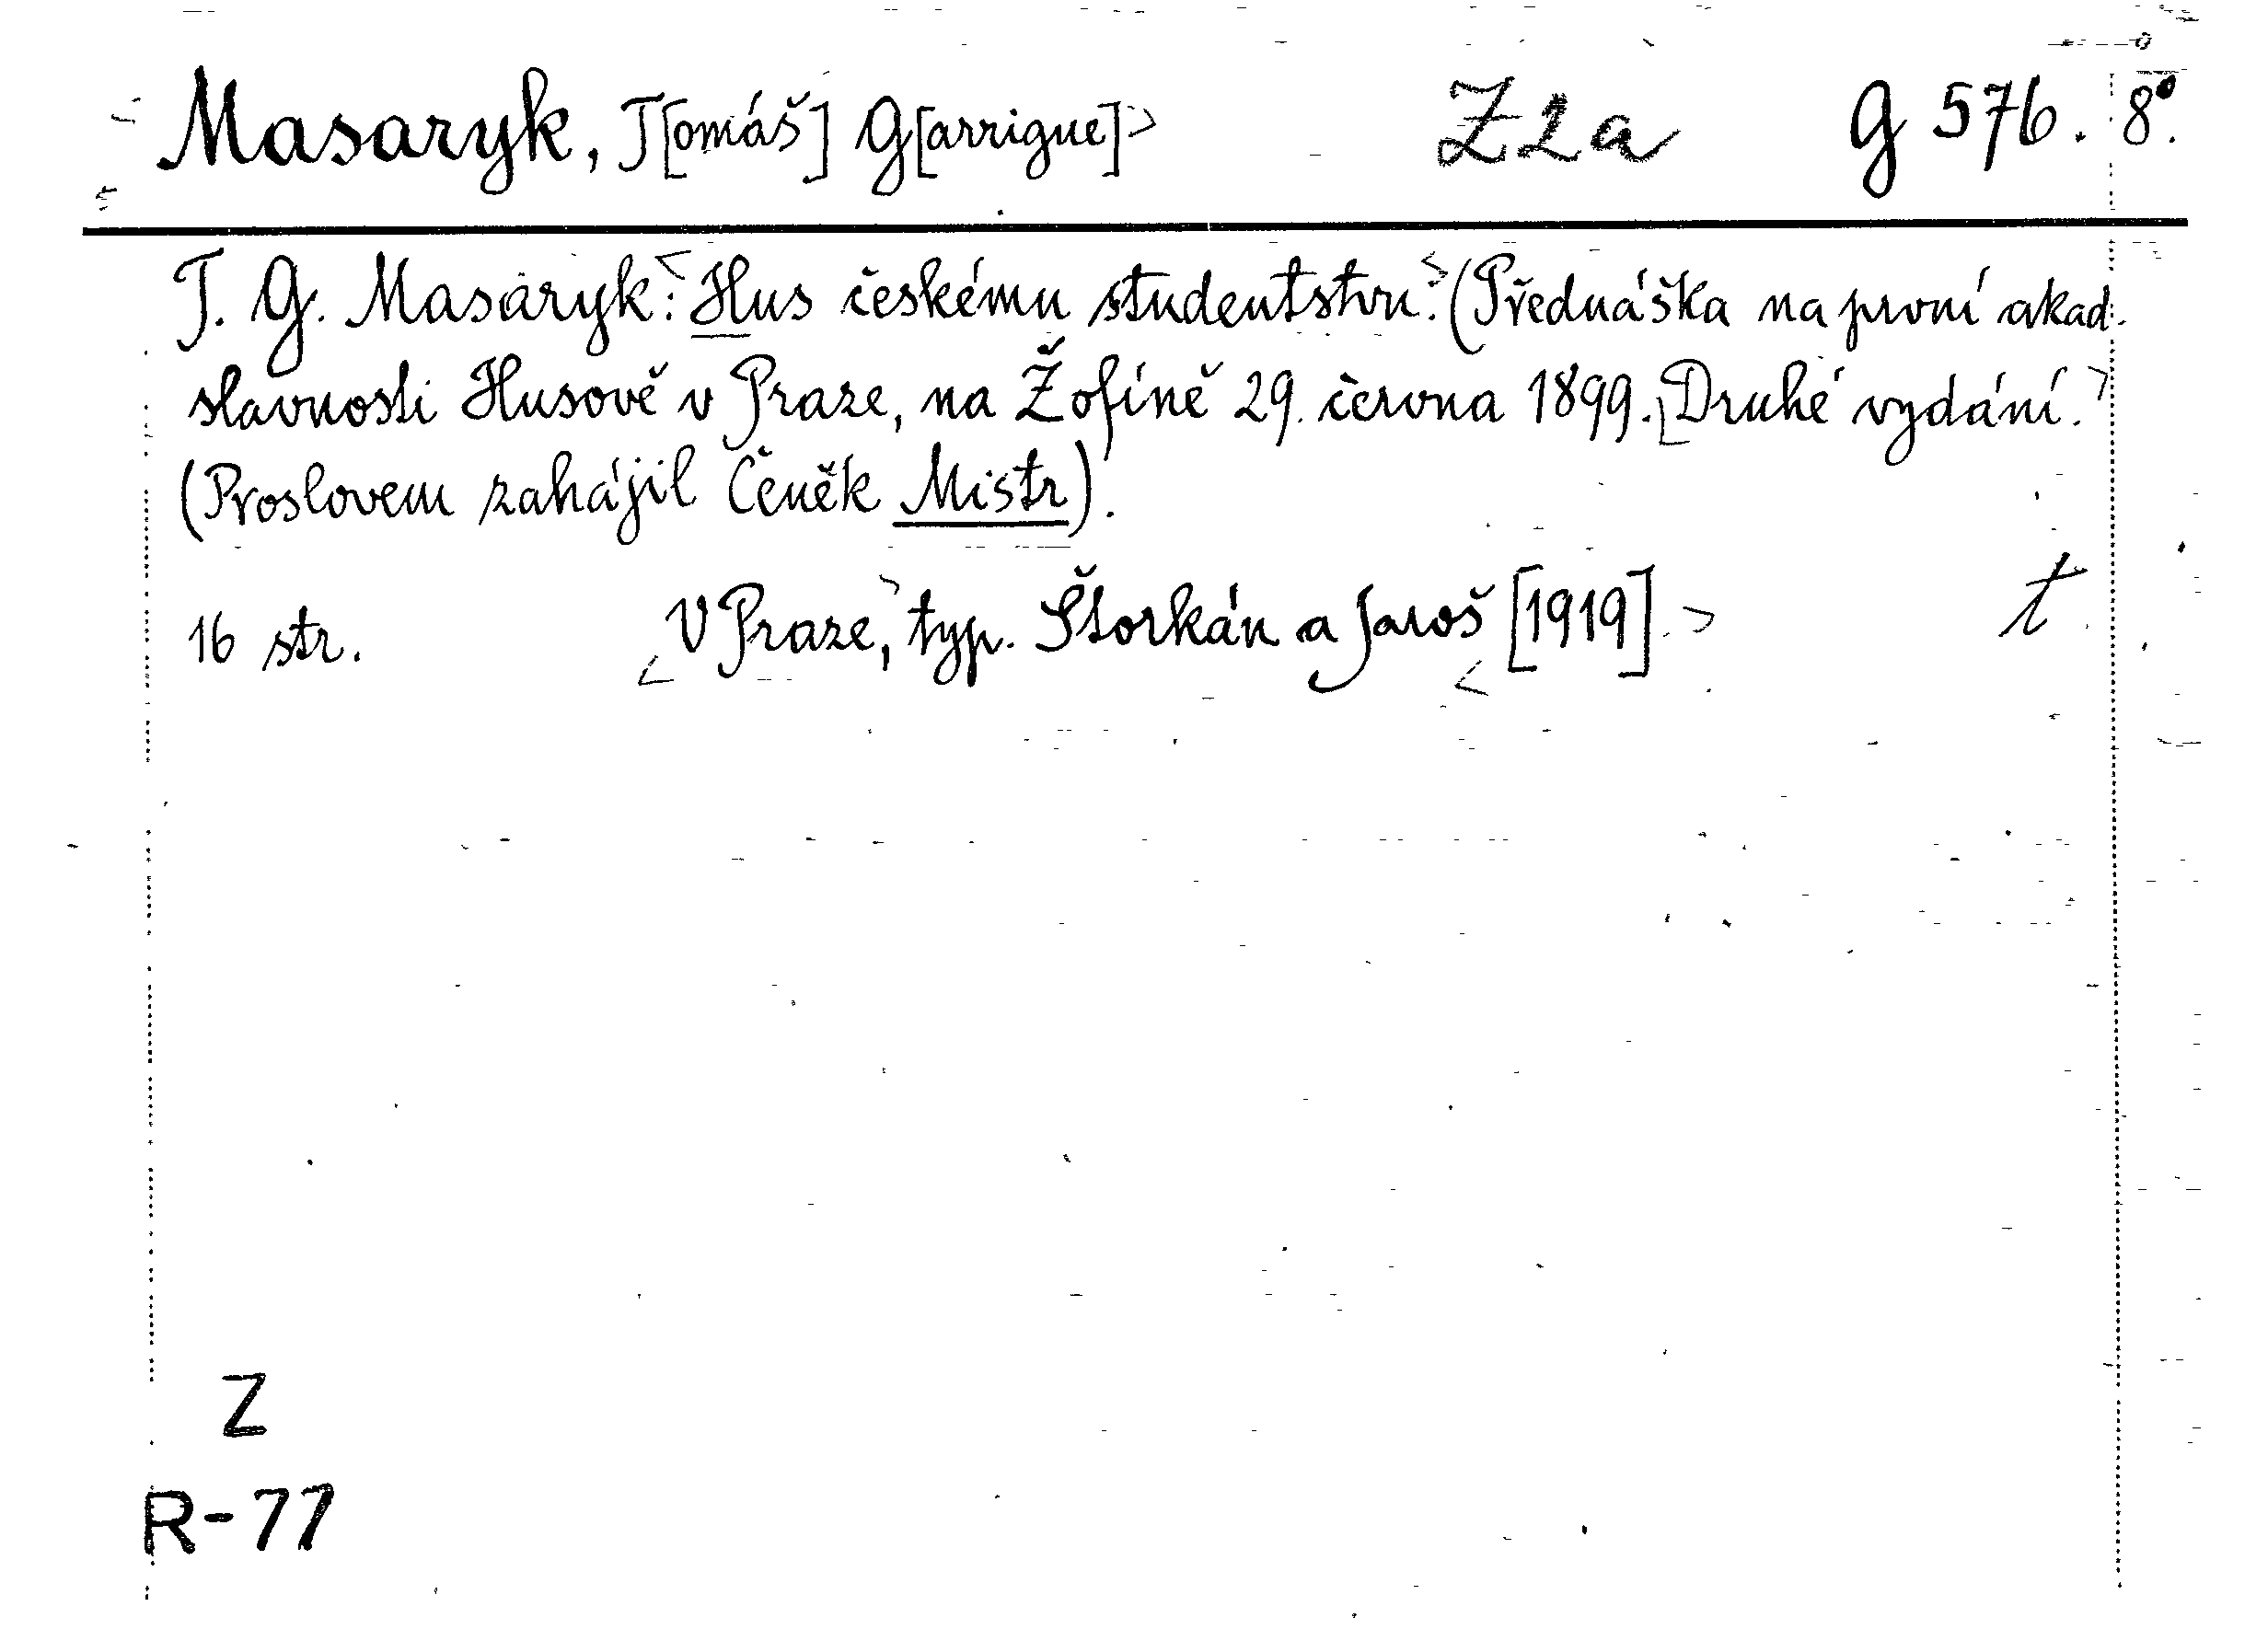 Masaryk, T[omáš] G[arrigue] Z2a G 576. 8°.
T. G. Masaryk: Hus českému studentstvu. (Přednáška na první akad.
slavnosti Husově v Praze, na Žofíně 29. června 1899. Druhé vydání.
(Proslovem zahájil Čeněk Mistr).
16 str. V Praze, typ. Štorkán a Jaroš [1919]. t
Z
R-77